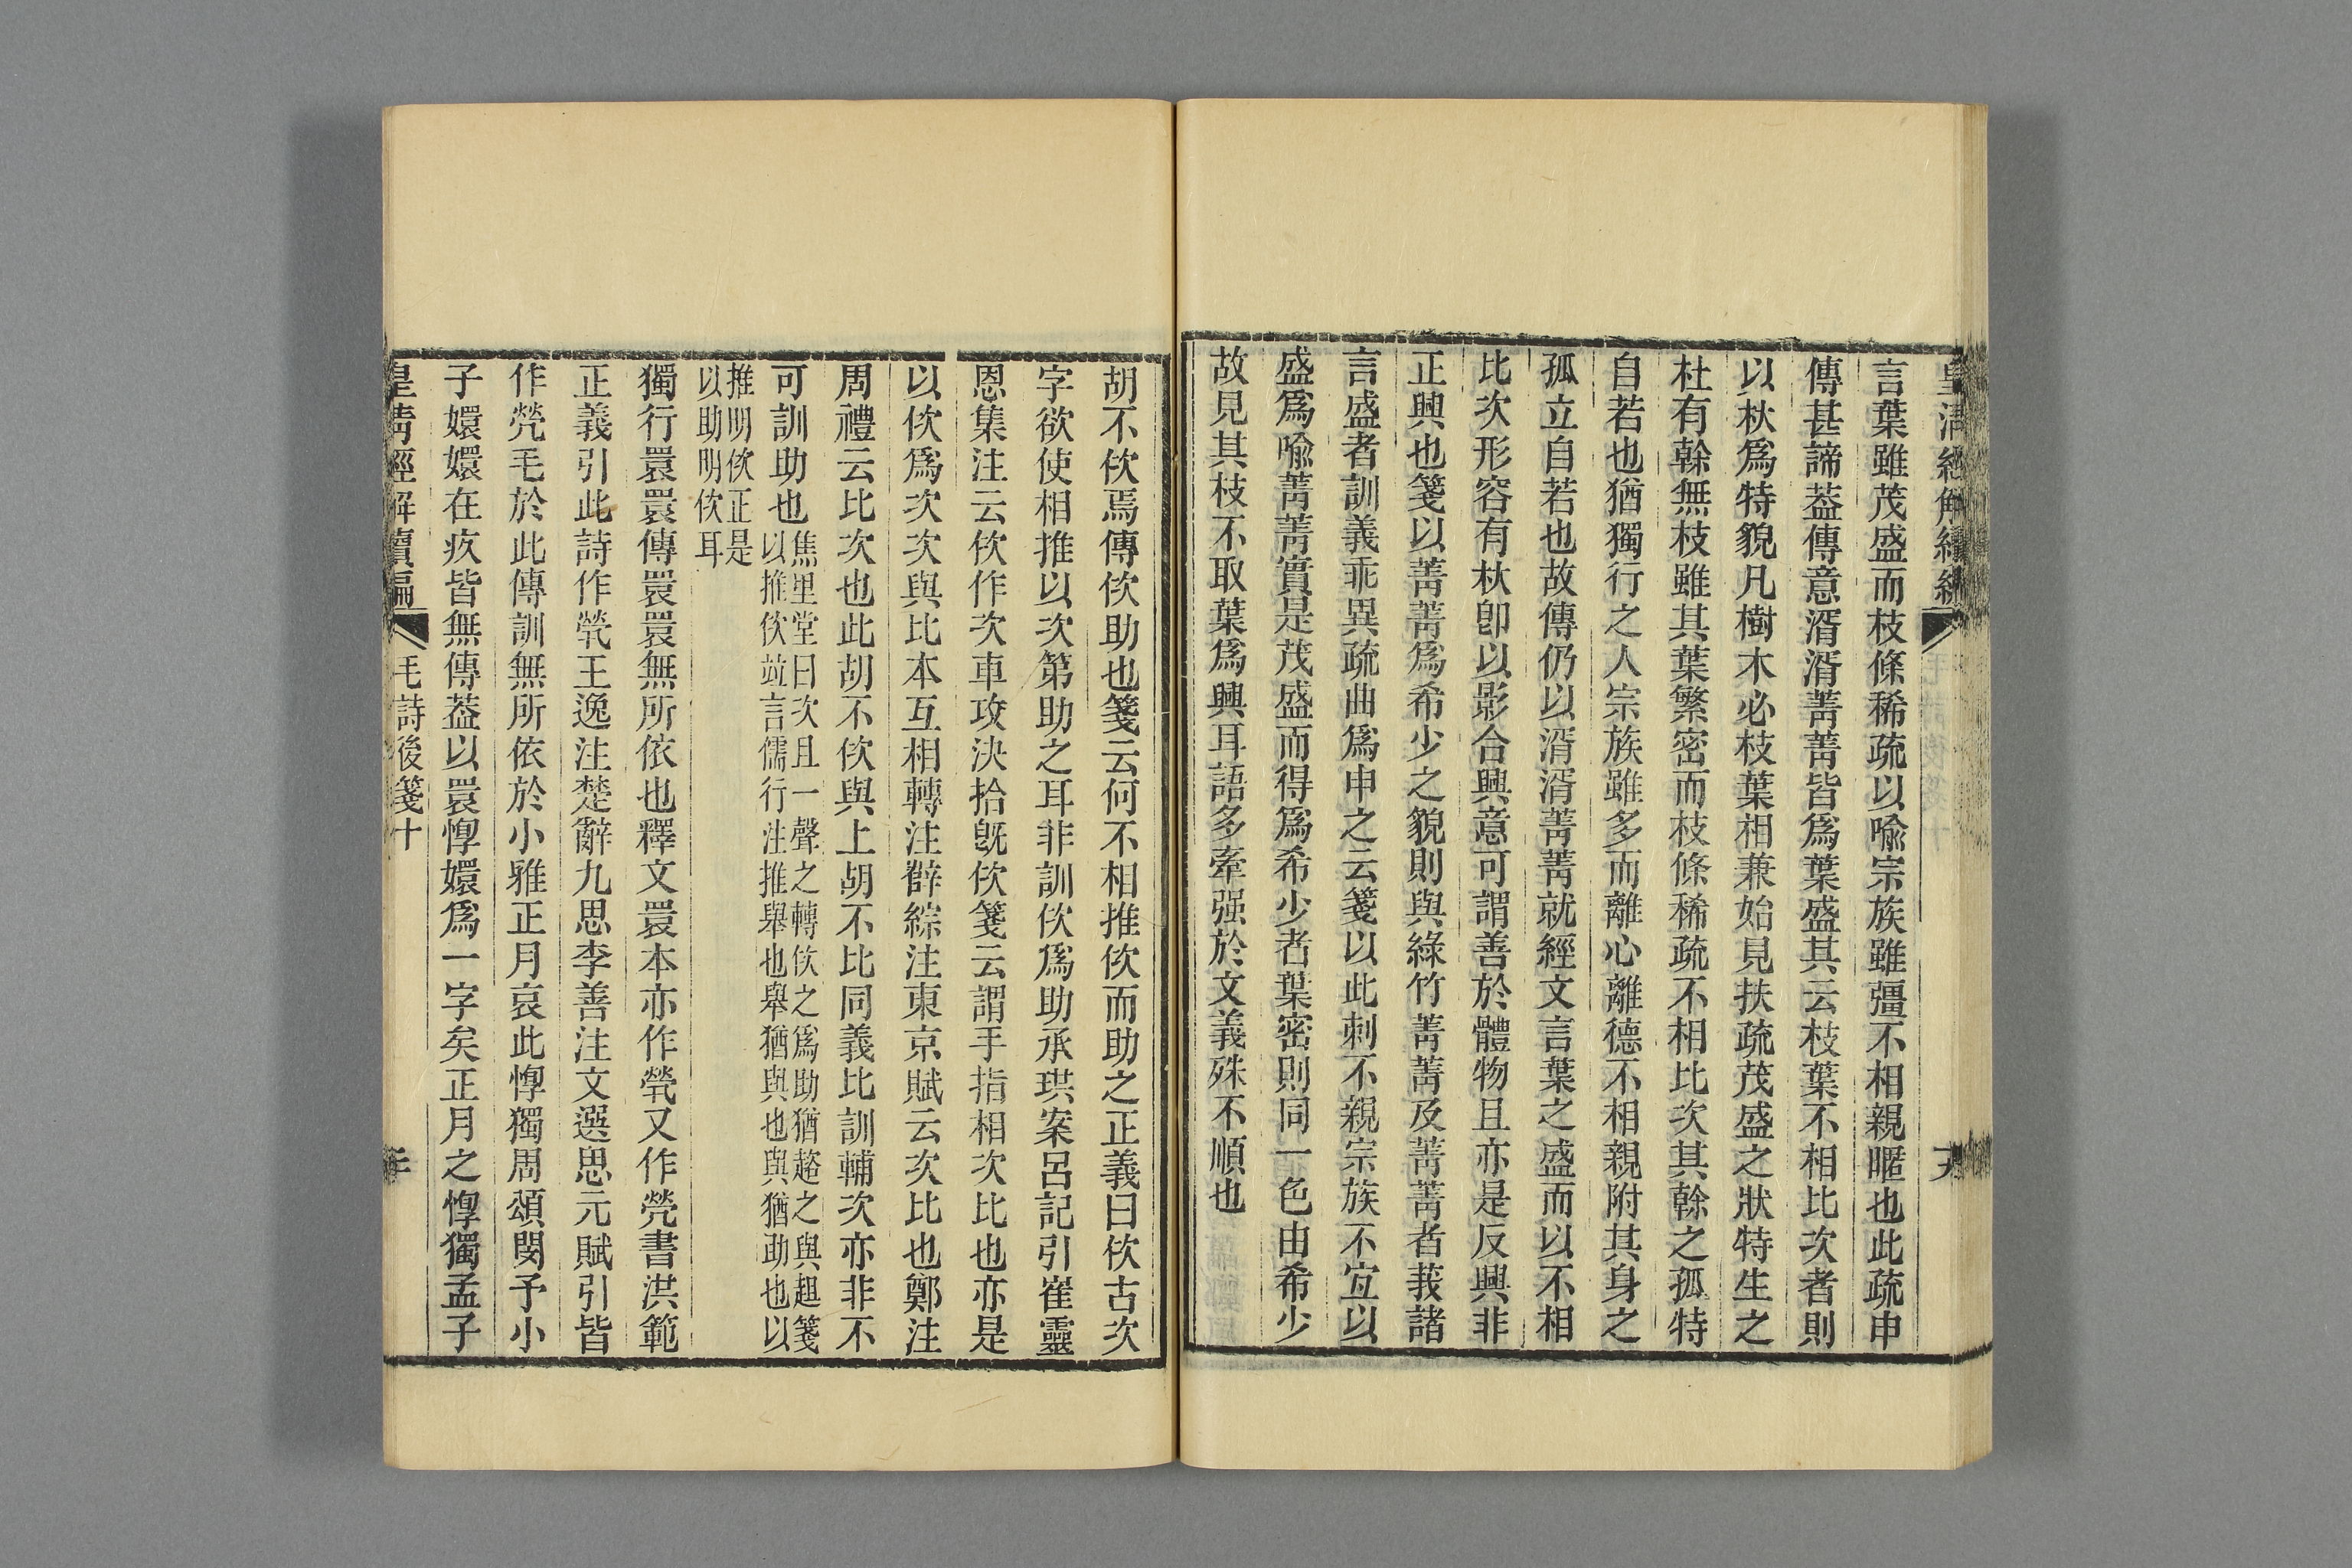 言葉雖茂盛而枝條稀疏以喻宗族雖彊不相親暱也此疏申
傳甚諦葢傳意湑湑菁菁皆爲葉盛其云枝葉不相比次者則
以杕爲特貌凡樹木必枝葉相兼始見扶疏茂盛之狀特生之
杜有榦無枝雖其葉繁密而枝條稀疏不相比次其榦之孤特
自若也猶獨行之人宗族雖多而離心離德不相親附其身之
孤立自若也故傳仍以湑湑菁菁就經文言葉之盛而以不相
比次形容有杕卽以影合興意可謂善於體物且亦是反興非
正興也箋以菁菁爲希少之貌則與綠竹菁菁及菁菁者莪諸
言盛者訓義乖異疏曲爲申之云箋以此刺不親宗族不宜以
盛爲喻菁菁實是茂盛而得爲希少者葉密則同一色由希少
故見其枝不取葉爲興耳語多牽强於文義殊不順也
胡不佽焉傳佽助也箋云何不相推佽而助之正義曰佽古次
字欲使相推以次第助之耳非訓佽爲助承珙案呂記引崔靈
恩集注云佽作次車攻決拾旣佽箋云謂手指相次比也亦是
以佽爲次次與比本互相轉注薛綜注東京賦云次比也鄭注
周禮云比次也此胡不佽與上胡不比同義比訓輔次亦非不
可訓助也焦里堂曰次且一聲之轉佽之爲助猶趑之與趄箋
以推佽竝言儒行注推舉也舉猶與也與猶助也以
推明佽正是
以助明佽耳
獨行睘睘傳睘睘無所依也釋文睘本亦作煢又作㷀書洪範
正義引此詩作煢王逸注楚辭九思李善注文選思元賦引皆
作㷀毛於此傳訓無所依於小雅正月哀此惸獨周頌閔予小
子嬛嬛在疚皆無傳葢以睘惸嬛爲一字矣正月之惸獨孟子
皇清經解續編 毛詩後箋十